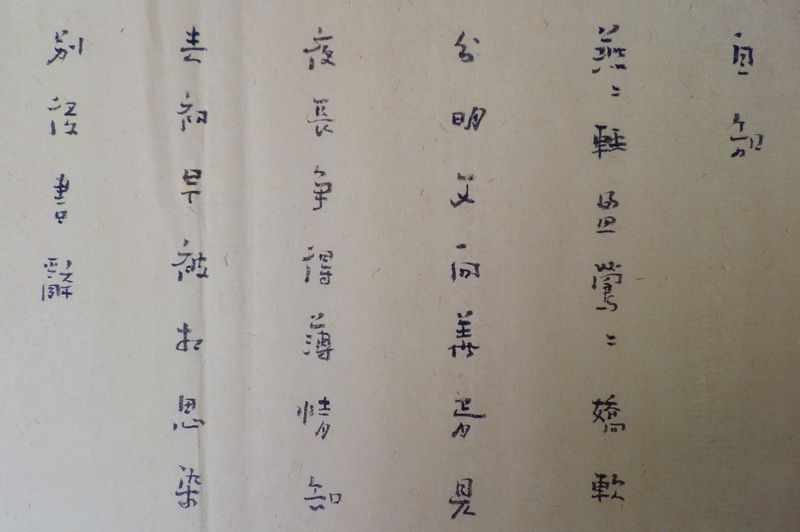 自知
燕〻輕盈鶯〻嬌軟
分明又向華胥見
夜長争得薄情知
春初早被相思染
別後書辭